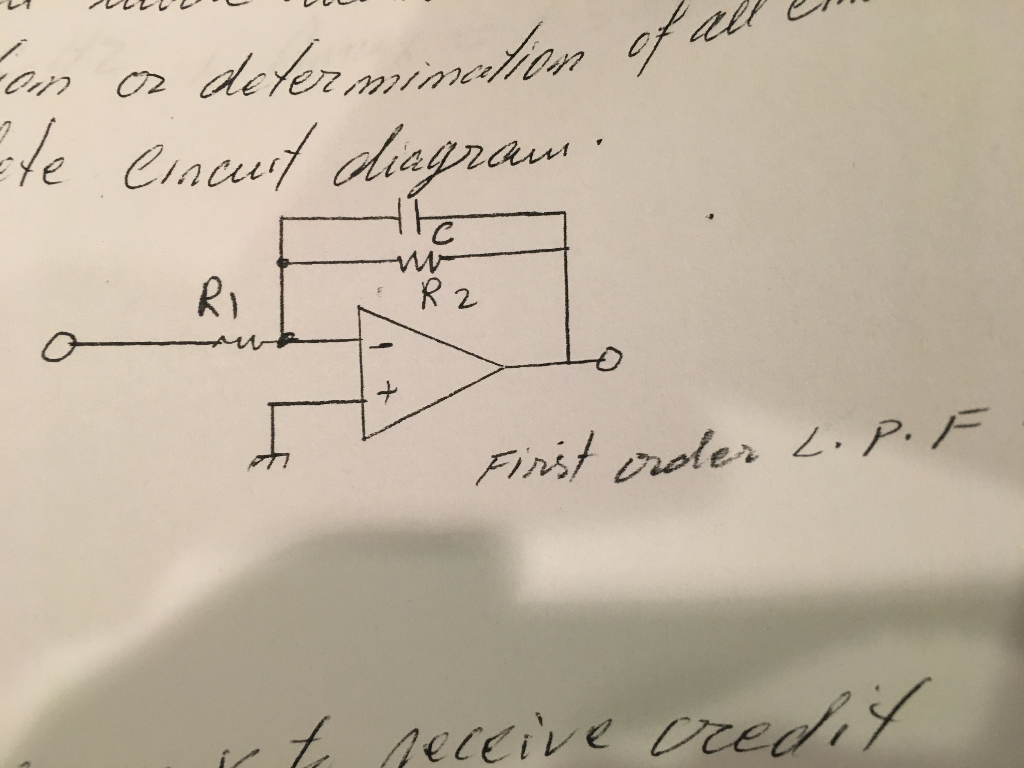 or determination of all
circuit diagram.
C
R2
R1
-
+
First order L.P.F
to receive credit